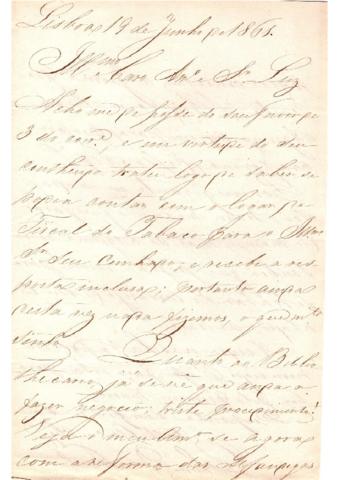 Lisboa 19 de Junho de 1865.
Illmo
Caro Amo e Sr. Luz
Acho me de posse do seu favor de
3 do corre, e em virtude do seu
conteudo tratei logo de saber se
podia contar com o logar de
Fiscal do Tabaco para o Illmo
Sr. Seu Cunhado; e recebi a res
posta inclusa; portanto ainda
esta vez nada fizemos, o que mto
sinto.
Quanto ao Biblio
thecario, já se vê que anda a
fazer negocio: triste procedimento!
Veja o meu Amo se agora
com a reforma das Alfandegas